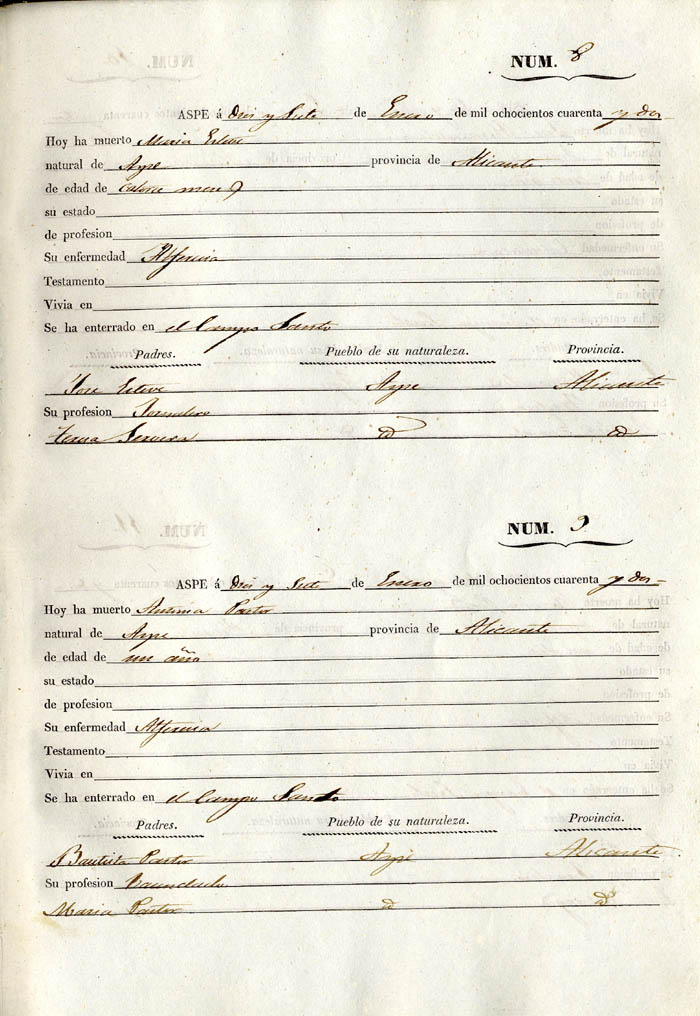 NUM. 8
ASPE á Dies y Siete de Enero de mil ochocientos cuarenta y dos
Hoy ha muerto Maria Esteve
natural de Aspe provincia de Alicante
de edad de catorce meses
su estado
de profesion
Su enfermedad Alferecia
Testamento
Vivia en
Se ha enterrado en el Campo Santo
Padres. Pueblo de su naturaleza. Provincia.
Jose Esteve Aspe Alicante
Su profesion Jornalero
Teresa id id
NUM. 9
ASPE á Dies y Siete de Enero de mil ochocientos cuarenta y dos
Hoy ha muerto Antonia Pastor
natural de Aspe provincia de Alicante
de edad de un año
su estado
de profesion
Su enfermedad Alferecia
Testamento
Vivia en
Se ha enterrado en el Campo Santo
Padres. Pueblo de su naturaleza. Provincia.
Bautista Pastor Aspe Alicante
Su profesion
Maria Pastor id id